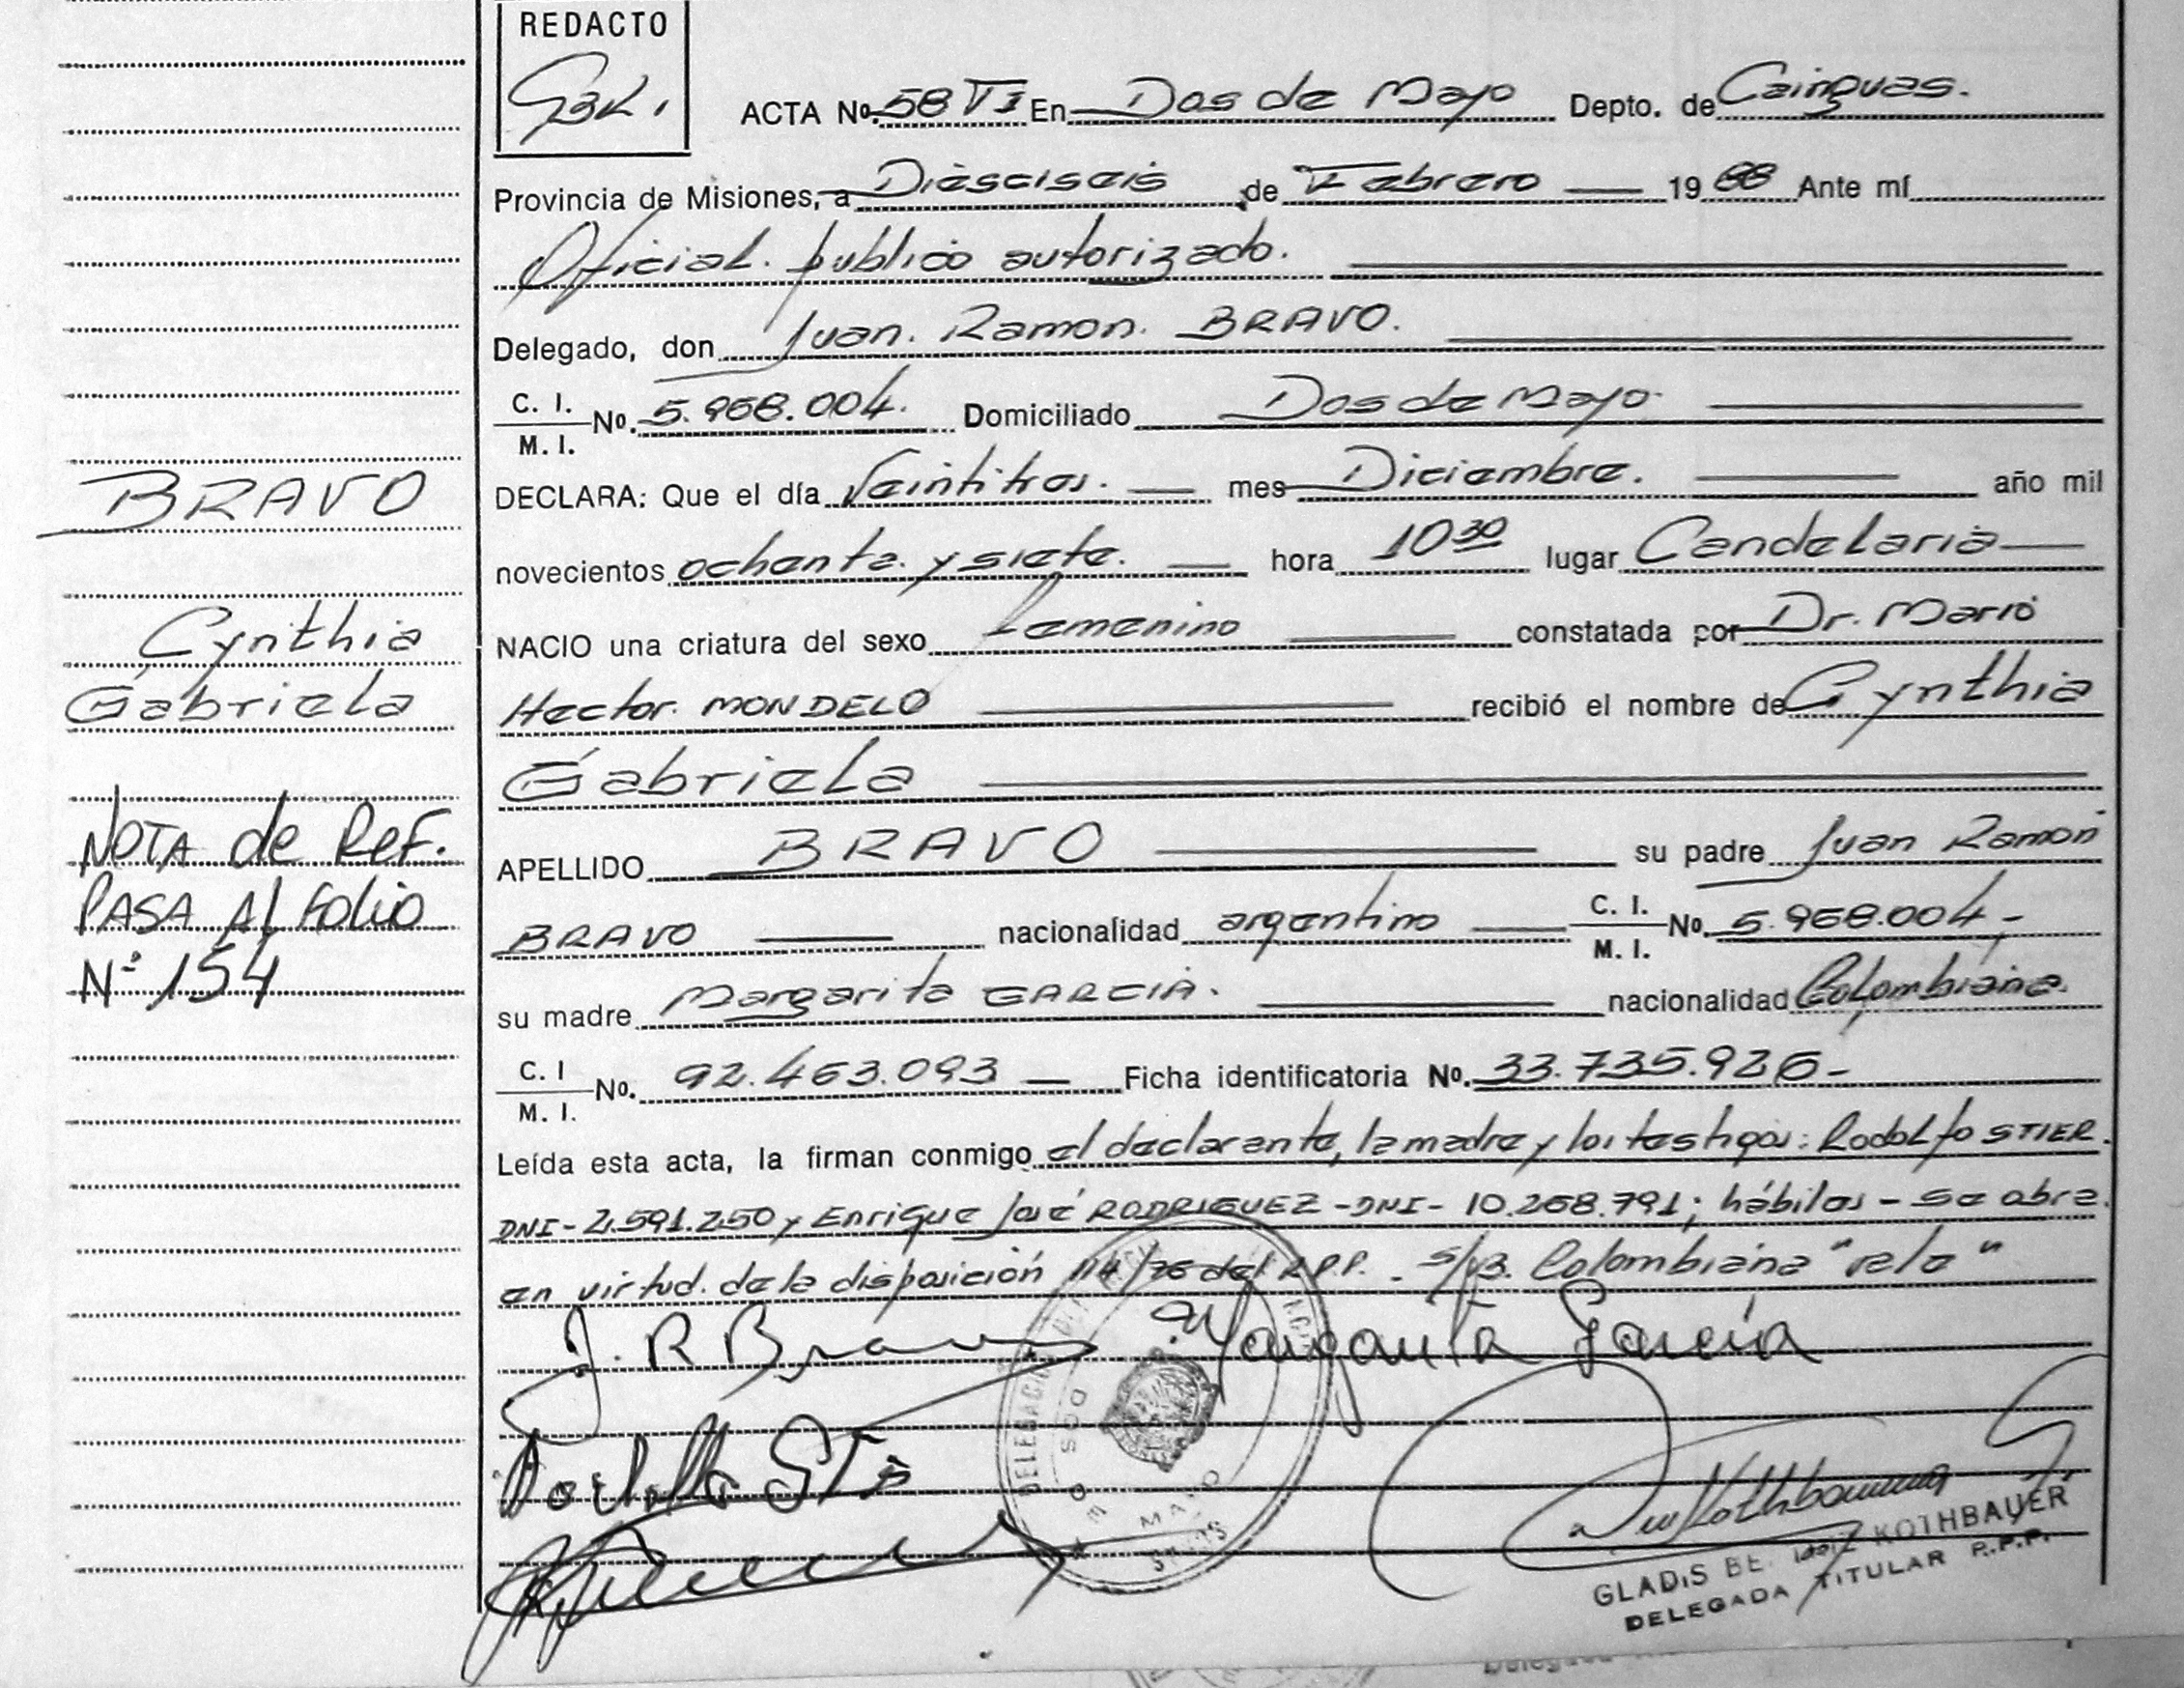 REDACTO
ACTA Nº 58 TI En Dos de Mayo Depto. de Cainguas.
Provincia de Misiones, a Diesciseis de Febrero 1988 Ante mí
Oficial. publico autorizado.
Delegado, don Juan. Ramon. BRAVO.
C. I.
M. I. Nº. 5.968.004. Domiciliado Dos de Mayo
DECLARA: Que el día Veintitres. mes Diciembre. año mil
novecientos ochenta. y siete. hora 10 30 lugar Candelaria
NACIO una criatura del sexo femenino constatada por Dr. Mario
Hector. MONDELO recibió el nombre de Cynthia
Gabriela
APELLIDO BRAVO su padre Juan Ramon
BRAVO nacionalidad argentino C. I.
M. I. Nº. 5.968.004,-
su madre Margarita GARCIA. nacionalidad Colombiana.
C. I
M. I. Nº. 92.463.093 Ficha identificatoria Nº. 33.735.926-
Leída esta acta, la firman conmigo el declarante, la madre y los testigos: Rodolfo STIER.
DNI-2.591.250 y Enrique José RODRIGUEZ -DNI- 10.268.791; hábiles - se abre.
en virtud. de la disposición 114/76 del R.P.P. - Colombiana "vale"
J. R Bravo Margarita García
DOS DE MAYO
GLADIS BE. KOTHBAUER
DELEGADA TITULAR R.P.P.
BRAVO
Cynthia
Gabriela
NOTA de Ref.
PASA Al folio
Nº 154